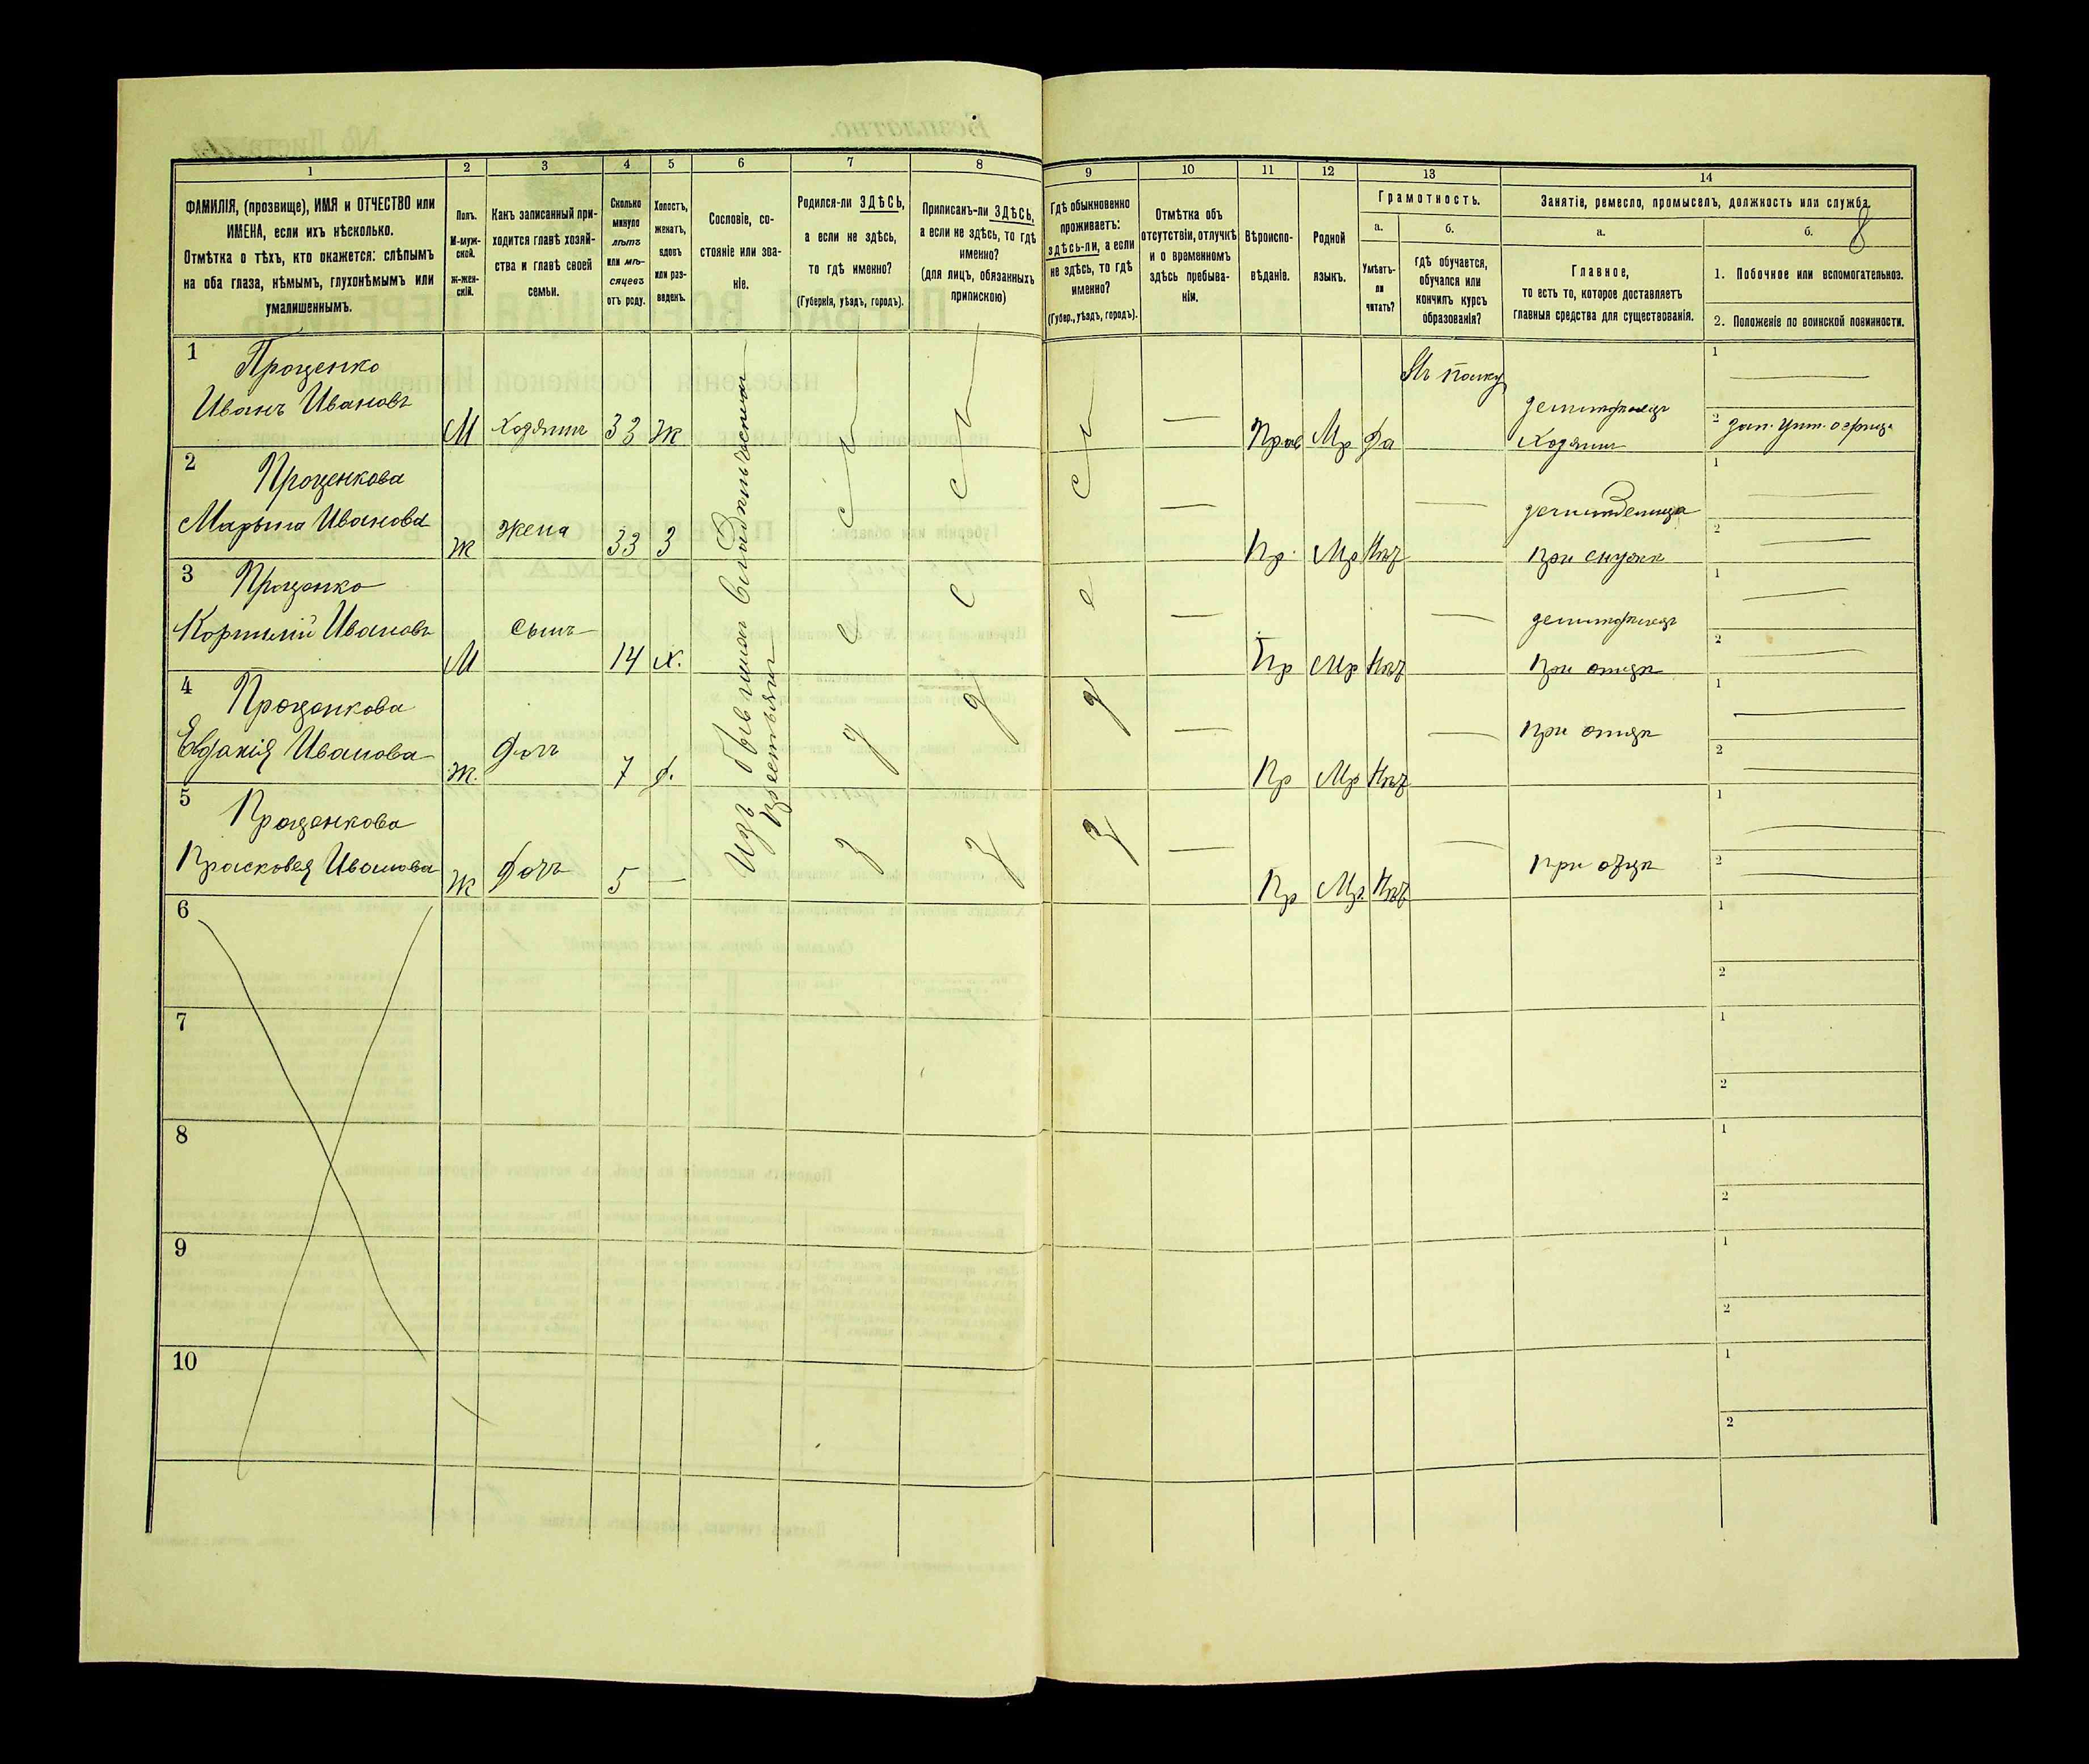 1 2 3 4 5 6 7 8 9 10 11 12 13 14
ФАМИЛІЯ, (прозвище), ИМЯ и ОТЧЕСТВО или
ИМЕНА, если ихъ нѣсколько.
Отмѣтка о тѣхъ, кто окажется: слѣпымъ
на оба глаза, нѣмымъ, глухонѣмымъ или
умалишеннымъ.
Полъ.
М-муж-
ской.
Ж-жен-
скій.
Какъ записанный при-
ходится главѣ хозяй-
ства и главѣ своей
семьи.
Сколько
минуло
лѣтъ
или мѣ-
сяцевъ
отъ роду.
Холостъ,
женатъ,
вдовъ
или раз-
веденъ.
Сословіе, со-
стояніе или зва-
ніе.
Родился-ли ЗДѢСЬ,
а если не здѣсь,
то гдѣ именно?
(Губернія, уѣздъ, городъ).
Приписанъ-ли ЗДѢСЬ,
а если не здѣсь, то гдѣ
именно?
(для лицъ, обязанныхъ
припискою)
Гдѣ обыкновенно
проживаетъ:
здѣсь-ли, а если
не здѣсь, то гдѣ
именно?
(Губер., уѣздъ, городъ).
Отмѣтка объ
отсутствіи, отлучкѣ
и о временномъ
здѣсь пребыва-
ніи.
Вѣроиспо-
вѣданіе.
Родной
языкъ.
Грамотность.
а.
Умѣетъ-
ли
читать?
б.
гдѣ обучается,
обучался или
кончилъ курсъ
образованія?
Занятіе, ремесло, промыселъ, должность или служба.
8
а.
Главное,
то есть то, которое доставляетъ
главныя средства для существованія.
б.
1. Побочное или вспомогательное.
2. Положеніе по воинской повинности.
1
Проценко
Иванъ Ивановъ
М Хозяинъ 33 Ж
Изъ бывшихъ
крестьянъ
здѣсь здѣсь здѣсь
—
Прав Мр Да
Въ полку
Хозяинъ
1 —
2
2
Проценкова
Марьина Иванова
Ж Жена 33 З
—
Пр. Мр Нѣт
—
1 —
2 —
3
Проценко
Корнилій Ивановъ
М сынъ 14 Х.
—
Пр Мр Нѣт
—
При отцѣ
1 —
2 —
4
Проценкова
Евдокія Иванова
Ж. Дочь 7 Д.
—
Пр Мр Нѣт
—
При отцѣ
1 —
2 —
5
Проценкова
Прасковея Иванова
Ж Дочь 5 —
—
Пр Мр. Нѣт
—
При отцѣ
1 —
2 —
6
1
2
7
1
2
8
1
2
9
1
2
10
1
2